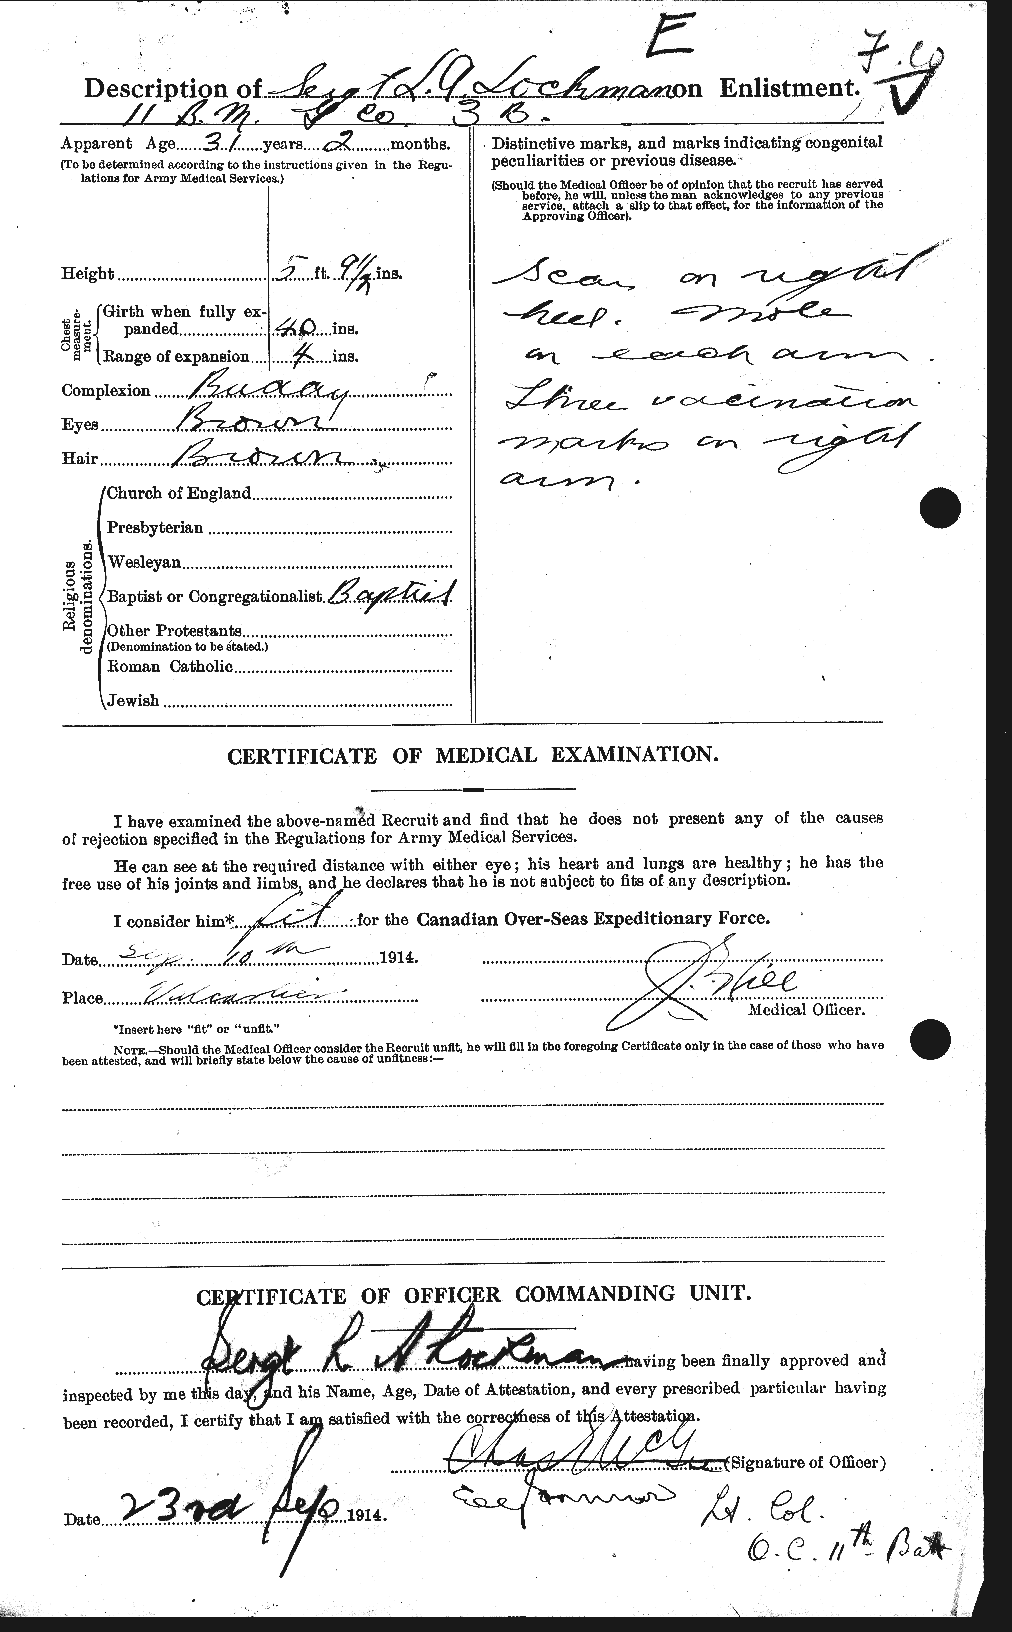 E
Description of Sergt L. A. Lockman on Enlistment.
11 B. M. Co. 3 B.
Apparent Age 31 years 2 months.
(To be determined according to the instructions given in the Regu-
lations for Army Medical Services.)
Height 5 ft. 9 1/2 ins.
Chest measure-ment.
Girth when fully ex-
panded 40 ins.
Range of expansion 4 ins.
Complexion Ruddy
Eyes Brown
Hair Brown
Religious denominations.
Church of England
Presbyterian
Wesleyan
Baptist or Congregationalist Baptist
Other Protestants
(Denomination to be stated.)
Roman Catholic
Jewish
Distinctive marks, and marks indicating congenital
peculiarities or previous disease.
(Should the Medical Officer be of opinion that the recruit has served
before, he will, unless the man acknowledges to any previous
service, attach a slip to that effect, for the information of the
Approving Officer).
Scar on right
heel. Mole
on each arm.
Three vacination
marks on right
arm.
CERTIFICATE OF MEDICAL EXAMINATION.
I have examined the above-named Recruit and find that he does not present any of the causes
of rejection specified in the Regulations for Army Medical Services.
He can see at the required distance with either eye; his heart and lungs are healthy; he has the
free use of his joints and limbs, and he declares that he is not subject to fits of any description.
I consider him* fit for the Canadian Over-Seas Expeditionary Force.
Date Sep. 10th 1914.
Place Valcartier
Medical Officer.
*Insert here "fit" or "unfit."
NOTE.—Should the Medical Officer consider the Recruit unfit, he will fill in the foregoing Certificate only in the case of those who have
been attested, and will briefly state below the cause of unfitness:—
CERTIFICATE OF OFFICER COMMANDING UNIT.
Sergt L A Lockman having been finally approved and
inspected by me this day, and his Name, Age, Date of Attestation, and every prescribed particular having
been recorded, I certify that I am satisfied with the correctness of this Attestation.
(Signature of Officer)
Date 23rd Sep 1914.
Lt. Col.
O.C. 11th Batt